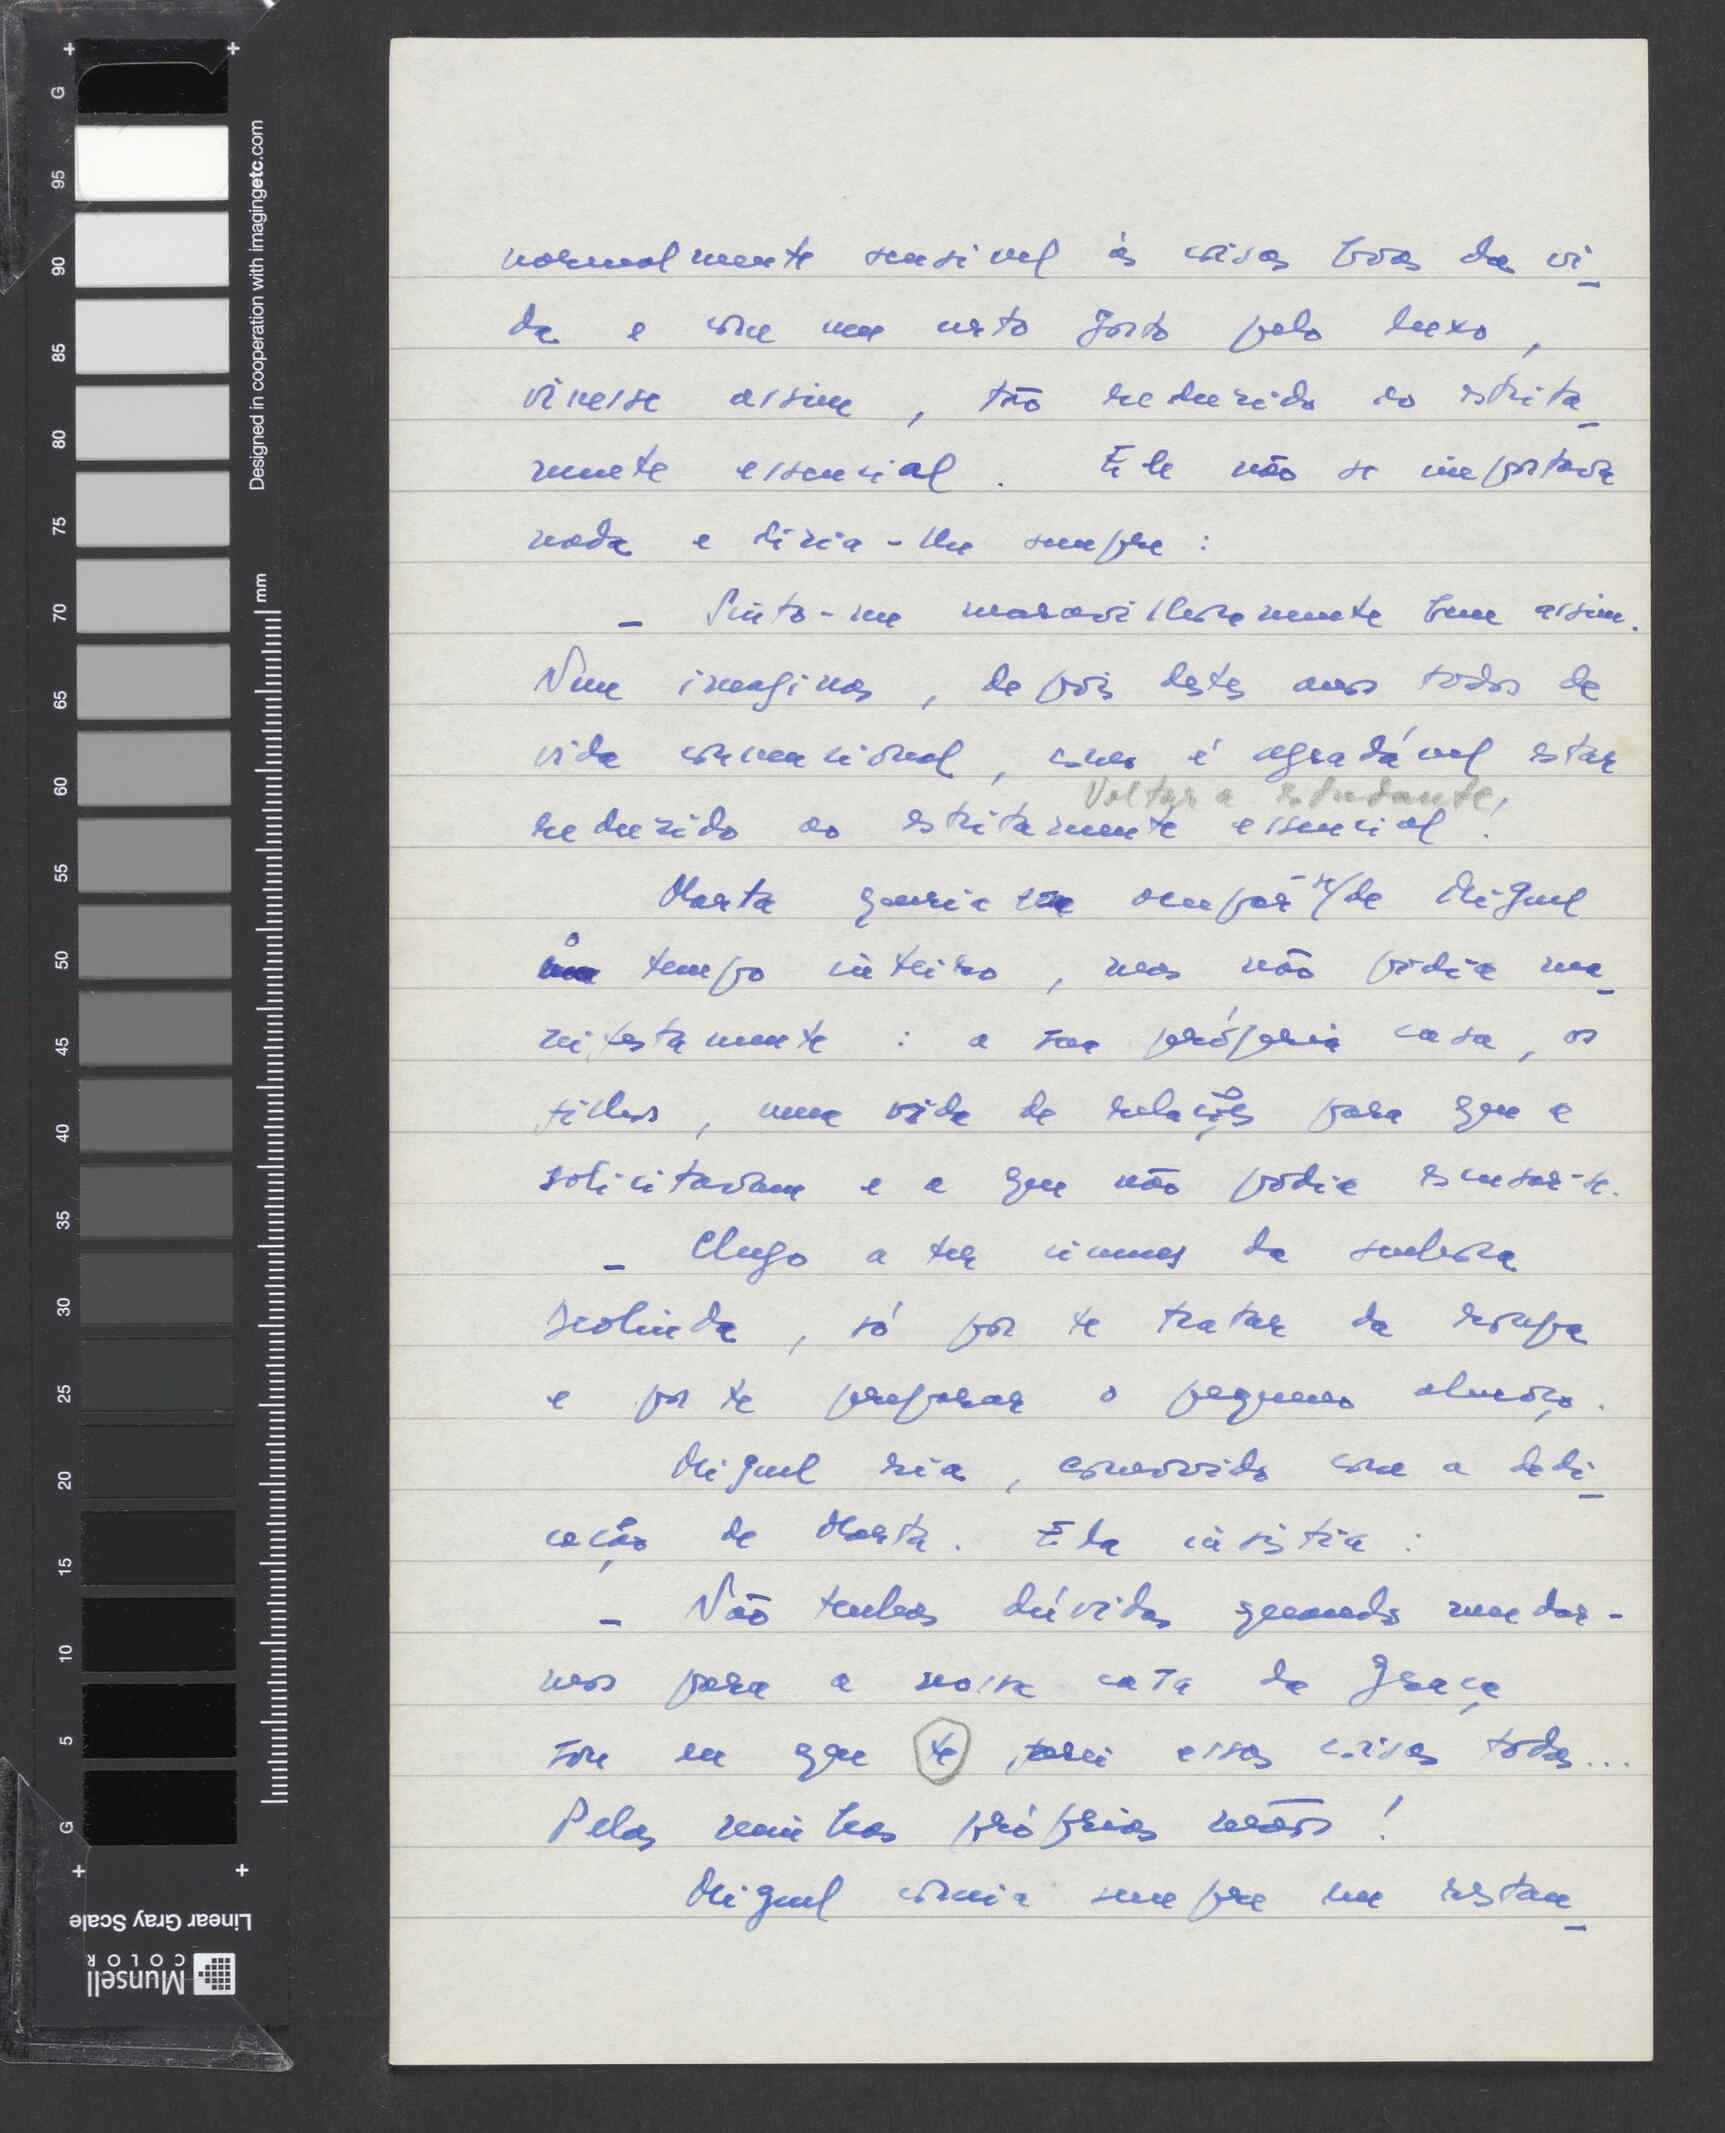 G
95
90
85
80
75
70
65
60
55
50
45
40
35
30
25
20
15
10
5
G
Designed in cooperation with imagingetc.com
mm
Linear Gray Scale
Munsell
COLOR
normalmente sensivel às coisas boas da vi-
da e com um nato gosto pelo luxo,
vivesse assim, tão reduzido ao estrita-
mente essencial. Ele não se importava
nada e dizia-lhe sempre:
– Sinto-me maravilhosamente bem assim.
Nem imaginas, depois destes anos todos de
vida convencional, como é agradável estar
Voltar a estudante!
reduzido ao estritamente essencial!
Marta queria ocupar-se de Miguel
o tempo inteiro, mas não podia ma-
nifestamente: a sua própria casa, os
filhos, uma vida de relações para que a
solicitavam e a que não podia escusar-se.
– Chego a ter ciumes da senhora
Deolinda, só por te tratar da roupa
e por te preparar o pequeno almôço.
Miguel ria, comovido com a dedi-
cação de Marta. Ela insistia:
– Não tenhas dúvidas quando mudar-
mos para a nossa casa da Graça
sou eu que te farei essas coisas todas...
Pelas minhas próprias mãos!
Miguel comia sempre num restau-